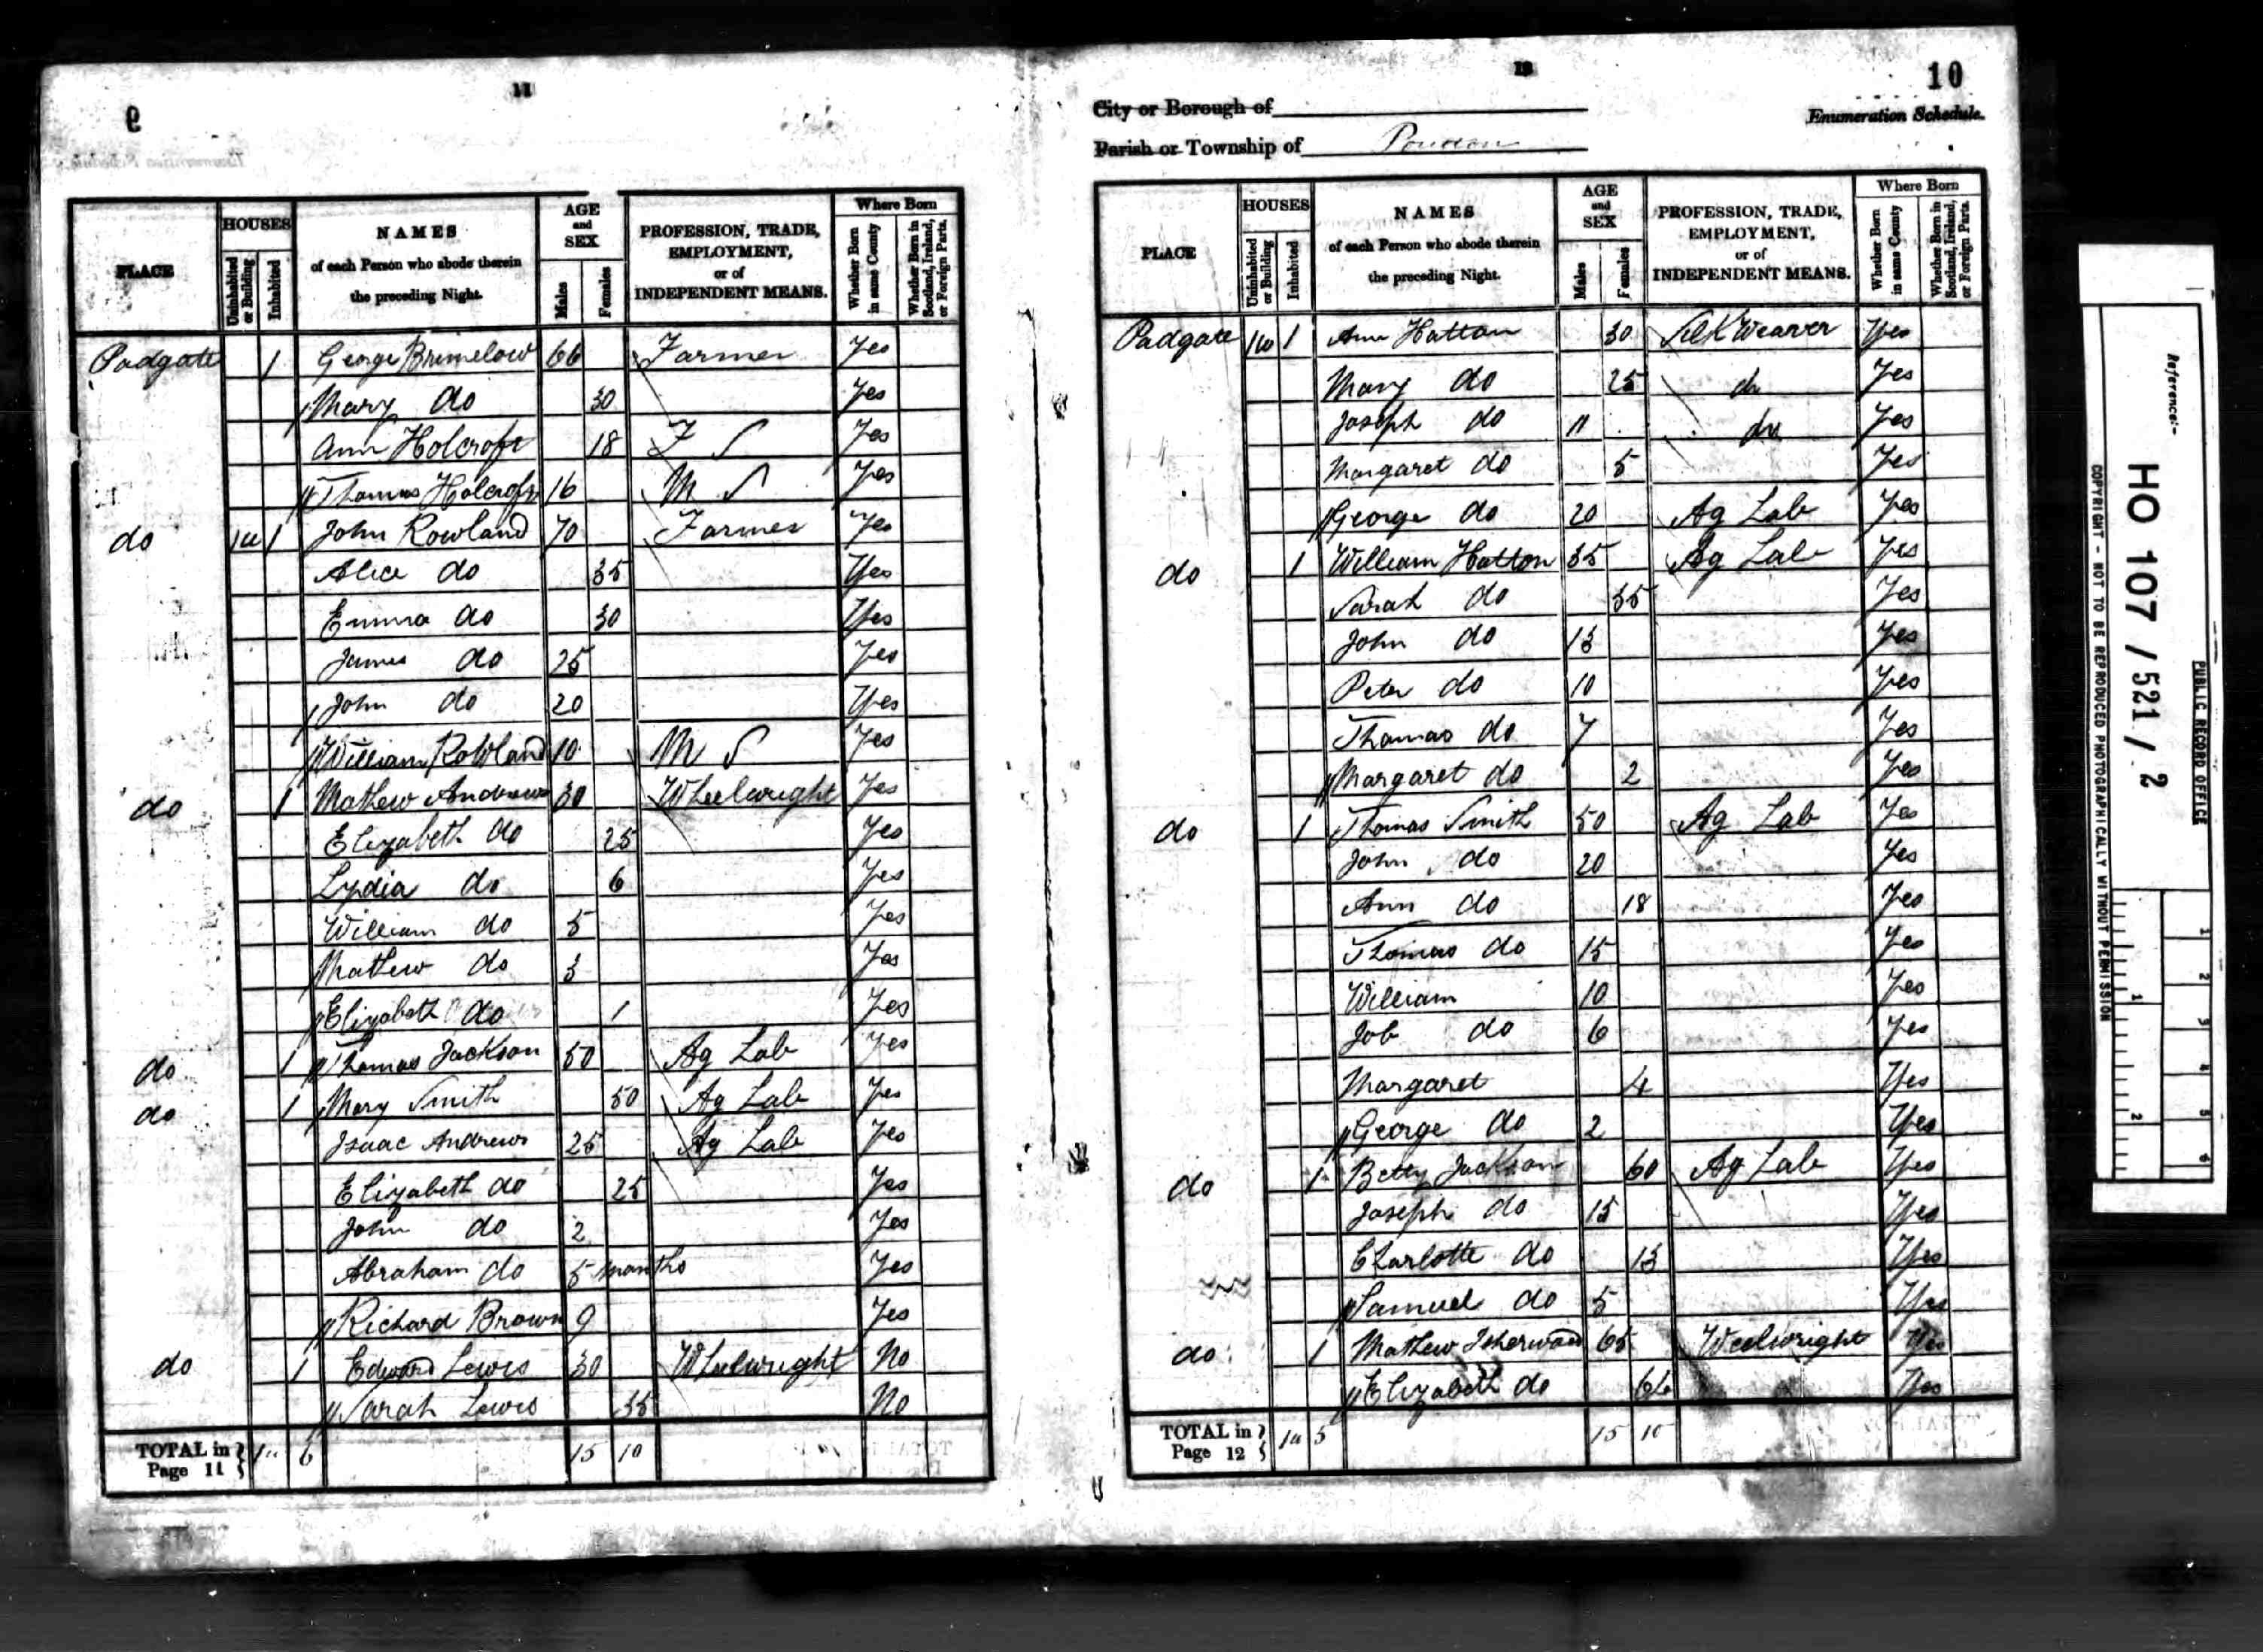 9
11
PLACE
HOUSES
Uninhabited or Building
Inhabited
NAMES
of each Person who abode therein
the preceding Night.
AGE
and
SEX
Males
Females
PROFESSION, TRADE,
EMPLOYMENT,
or of
INDEPENDENT MEANS.
Where Born
Whether Born in same County
Whether Born in Scotland, Ireland, or Foreign Parts.
Padgate 1 George Brimelow 66 Farmer Yes
Mary do 30 Yes
Ann Holcroft 18 F S Yes
Thomas Holcroft 16 M S Yes
do 1u 1 John Rowland 70 Farmer Yes
Alice do 35 Yes
Emma do 30 Yes
James do 25 Yes
John do 20 Yes
William Rowland 10 M S Yes
do 1 Mathew Andrews 30 Wheelwright Yes
Elizabeth do 25 Yes
Lydia do 6 Yes
William do 5 Yes
Mathew do 3 Yes
Elizabeth do 1 Yes
do 1 Thomas Jackson 50 Ag Lab Yes
do 1 Mary Smith 50 Ag Lab Yes
Isaac Andrews 25 Ag Lab Yes
Elizabeth do 25 Yes
John do 2 Yes
Abraham do 5 months Yes
Richard Brown 9 Yes
do 1 Edward Lewis 30 Wheelwright No
Sarah Lewis 35 No
TOTAL in Page 11 1u 6 15 10
12
10
City or Borough of
Enumeration Schedule.
Parish or Township of
PLACE
HOUSES
Uninhabited or Building
Inhabited
NAMES
of each Person who abode therein
the preceding Night.
AGE
and
SEX
Males
Females
PROFESSION, TRADE,
EMPLOYMENT,
or of
INDEPENDENT MEANS.
Where Born
Whether Born in same County
Whether Born in Scotland, Ireland, or Foreign Parts.
Padgate 1u 1 Ann Hatton 30 Silk Weaver Yes
Mary do 25 do Yes
Joseph do 11 do Yes
Margaret do 5 Yes
George do 20 Ag Lab Yes
do 1 William Hatton 35 Ag Lab Yes
Sarah do 35 Yes
John do 13 Yes
Peter do 10 Yes
Thomas do 7 Yes
Margaret do 2 Yes
do 1 Thomas Smith 50 Ag Lab Yes
John do 20 Yes
Ann do 18 Yes
Thomas do 15 Yes
William 10 Yes
Job do 6 Yes
Margaret 4 Yes
George do 2 Yes
do 1 Betty Jackson 60 Ag Lab Yes
Joseph do 15 Yes
Charlotte do 13 Yes
Samuel do 5 Yes
do 1 Mathew Isherwood 65 Weelwright Yes
Elizabeth do 66 Yes
TOTAL in Page 12 1u 5 15 10
Reference:-
HO 107 / 521 / 2
PUBLIC RECORD OFFICE
COPYRIGHT - NOT TO BE REPRODUCED PHOTOGRAPHICALLY WITHOUT PERMISSION
1 2 3 4 5 6
1 2